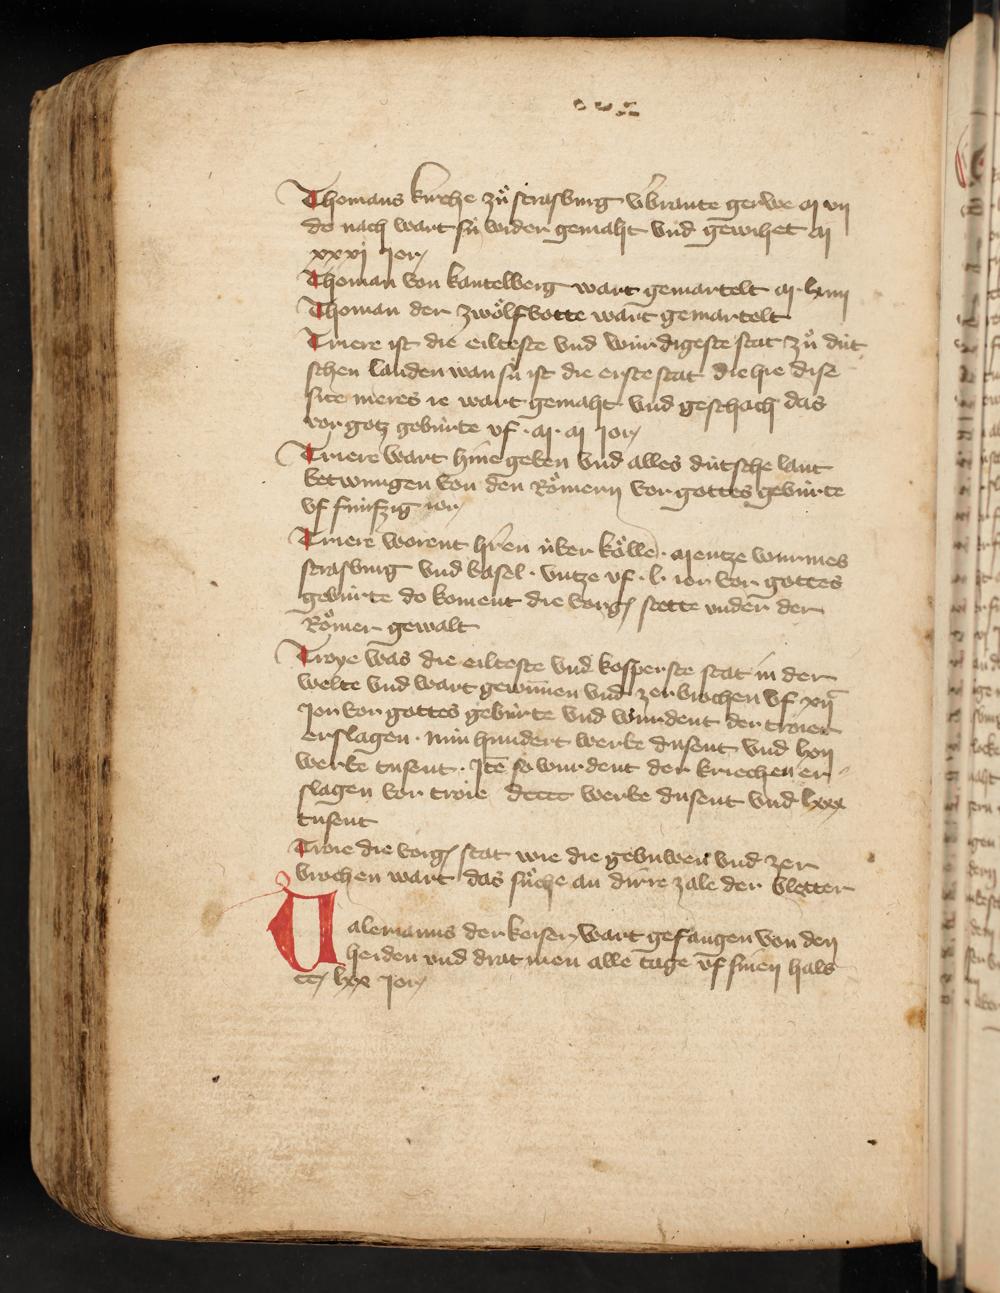 Thomans kirche zů strasburg v̓brante gerwe M vii
do nach wart sü wider gemaht vnd gewihet M
xxxi jor
Thoman von kantelberg wart gemartelt M lxxiiii
Thoman der zwölfbotte wart gemartelt
Triere ist die eilteste vnd würdigeste stat zů düt
schen landen wan sü ist die erste stat die hie dise
site meres ie wart gemaht vnd geschach das
vor gotz gebürte vf · M · M jor
Triere wart hine geben vnd alles dütsche lant
betwungen von den Römern vor gottes gebürte
vf fünfzig ior
Triere worent hren über kölle · Mentze wurmes
strasburg vnd basel · vntze vf · l · ior vor gottes
gebürte do koment die vorg stette vnder der
Römer gewalt
Troye was die eilteste vnd kosperste stat in der
welte vnd wart gewunnen vnd zerbrochen vf xii
Jor vor gottes gebürte vnd wurdent der troier
erslagen · nün hundert werbe dusent vnd lxx
werbe tusent · Jtē so wurdent der kriechen er
slagen vor troie dccc werbe dusent vnd lxxx
tusent
Troie die vorg stat wie die gebuwen vnd zer
brochen wart das süche an dirre zale der bletter
Valerianus der keiser wart gefangen von den
heiden vnd drat men alle tage vf sinen hals
cc lxx jor